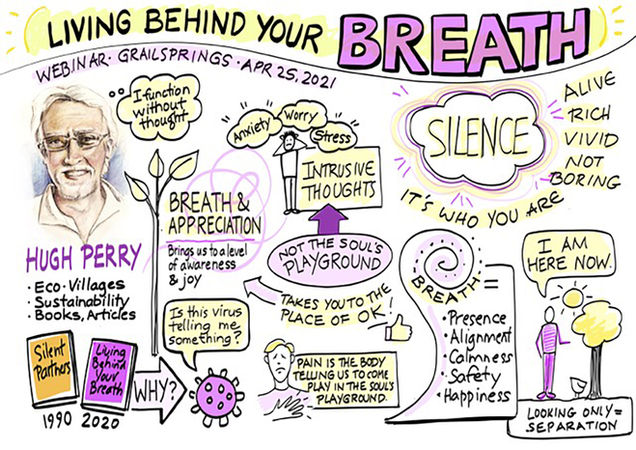 LIVING BEHIND YOUR BREATH
WEBINAR · GRAILSPRINGS · APR 25, 2021
I function
without
thought
HUGH PERRY
· Eco-Villages
· Sustainability
· Books, Articles
Silent
Partners
1990
Living
Behind
Your
Breath
2020
WHY?
BREATH &
APPRECIATION
Brings us to a level
of awareness
& joy
Is this virus
telling me
something?
Anxiety
Worry
Stress
INTRUSIVE
THOUGHTS
NOT THE SOUL'S
PLAYGROUND
TAKES YOU TO THE
PLACE OF OK!
PAIN IS THE BODY
TELLING US TO COME
PLAY IN THE SOUL'S
PLAYGROUND.
SILENCE
ALIVE
RICH
VIVID
NOT
BORING
IT'S WHO YOU ARE
BREATH
=
· Presence
· Alignment
· Calmness
· Safety
· Happiness
I AM
HERE NOW.
LOOKING ONLY =
SEPARATION